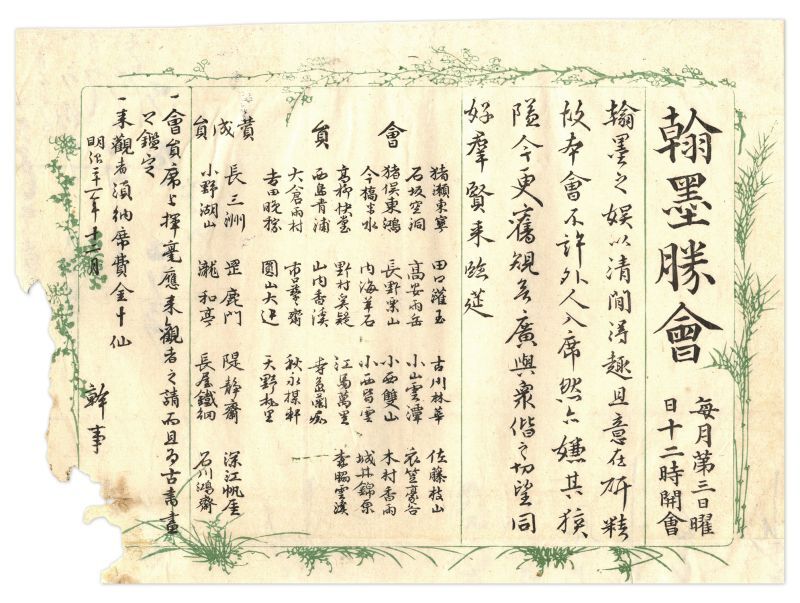 翰墨勝會
每月第三日曜
日十二時開會
翰墨之娯以清閒得趣且意在研精
故本會不許外人入席然亦嫌其狹
隘今更舊規为廣與衆偕之切望同
好羣賢来臨莚
會員
猪瀬東寧 田口蘿玉 古川林華 佐藤枝山
石坂空洞 高安雨岳 小山雲潭 衣笠豪谷
猪俣東鴻 長野栗山 小西雙山 木村香雨
今橋半水 内海羊石 小西皆雲 城井錦原
高柳快堂 野村 江馬萬里 李賜雲溪
西島青浦 山内香溪
大倉雨村 市口 齋 秋永棋軒
吉田晩稼 圓山大迂 天野
賛成員
長三洲 罡鹿門 隄静齋 深江帆崖
小野湖山 瀧和亭 長屋鐵洞 石川鴻齋
一會員席上揮毫應来觀者之請而且为古書畫
之鑑定
一来觀者須納席費金十仙
明治二十一年十二月
幹事